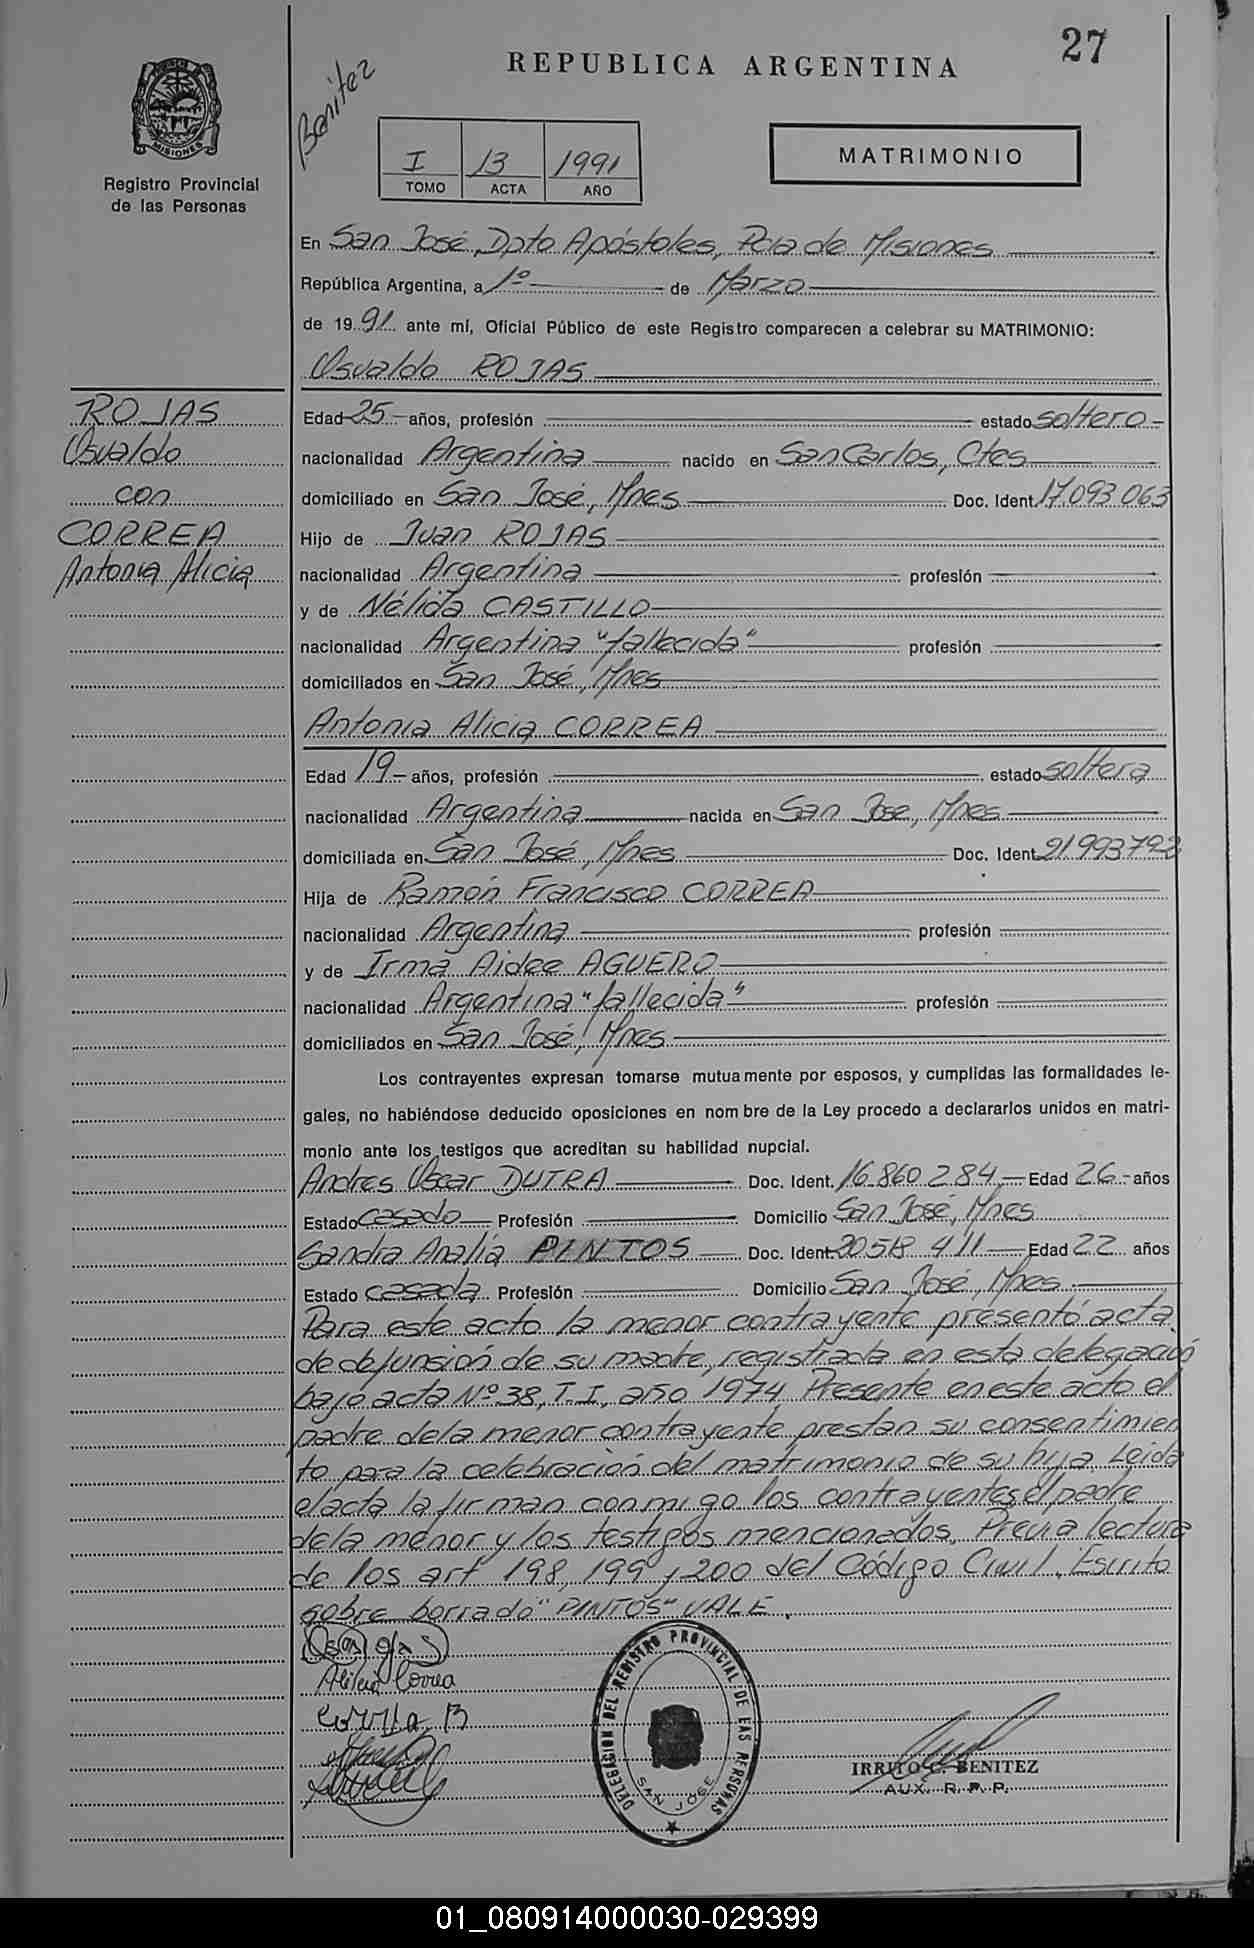 27
REPUBLICA ARGENTINA
Benitez
MISIONES
Registro Provincial
de las Personas
I 13 1991
TOMO ACTA AÑO
MATRIMONIO
En San José, Dpto Apóstoles, Pcia de Misiones
República Argentina, a 1º de Marzo
de 1991 ante mí, Oficial Público de este Registro comparecen a celebrar su MATRIMONIO:
Osvaldo ROJAS
ROJAS
Osvaldo
con
CORREA
Antonia Alicia
Edad 25 años, profesión estado soltero
nacionalidad Argentina nacido en San Carlos, Ctes
domiciliado en San José, Mnes Doc. Ident. 17.093.063
Hijo de Juan ROJAS
nacionalidad Argentina profesión
y de Nélida CASTILLO
nacionalidad Argentina "fallecida" profesión
domiciliados en San José, Mnes
Antonia Alicia CORREA
Edad 19 años, profesión estado soltera
nacionalidad Argentina nacida en San Jose, Mnes
domiciliada en San José, Mnes Doc. Ident.
Hija de Ramón Francisco CORREA
nacionalidad Argentina profesión
y de Irma Aidee AGUERO
nacionalidad Argentina "fallecida" profesión
domiciliados en San José, Mnes
Los contrayentes expresan tomarse mutuamente por esposos, y cumplidas las formalidades le-
gales, no habiéndose deducido oposiciones en nombre de la Ley procedo a declararlos unidos en matri-
monio ante los testigos que acreditan su habilidad nupcial.
Andres Oscar DUTRA Doc. Ident. 16.860.284 Edad 26 años
Estado casado Profesión Domicilio San José, Mnes
Sandra Analía PINTOS Doc. Ident. 20518 411 Edad 22 años
Estado casada Profesión Domicilio San José, Mnes
Para este acto la menor contrayente presentó acta
de defunsión de su madre, registrada en esta delegació
bajo acta Nº 38, T.I., año 1974. Presente en este acto el
padre de la menor contrayente prestan su consentimien
to para la celebración del matrimonio de su hija. Leida
el acta la firman conmigo los contrayentes, el padre
de la menor y los testigos mencionados. Previa lectura
de los art 198, 199 y 200 del Código Civil. Escrito
sobre borrado "PINTOS" VALE.
Alicia Correa
DELEGACION DEL REGISTRO PROVINCIAL DE LAS PERSONAS
SAN JOSE
IRRITO C. BENITEZ
AUX. R. P. P.
01_080914000030-029399